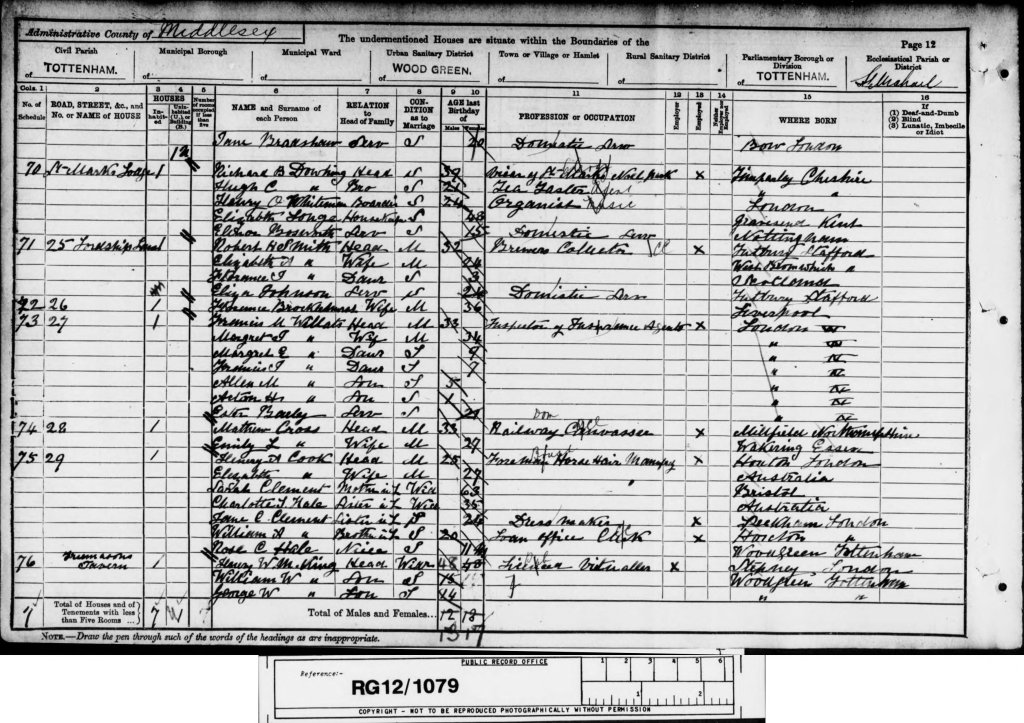 Administrative County of Middlesex
The undermentioned Houses are situate within the Boundaries of the
Page 12
Civil Parish
Municipal Borough
Municipal Ward
Urban Sanitary District
Town or Village or Hamlet
Rural Sanitary District
Parliamentary Borough or Division
Ecclesiastical Parish or District
of TOTTENHAM.
of
of
of WOOD GREEN.
of
of
of TOTTENHAM.
of St Michael
Cols. 1 2 3 4 5 6 7 8 9 10 11 12 13 14 15 16
No. of Schedule
ROAD, STREET, &c., and No. or NAME of HOUSE
HOUSES
Inhabited
Uninhabited (U.), or Building (B.)
Number of rooms occupied if less than five
NAME and Surname of each Person
RELATION to Head of Family
CONDITION as to Marriage
AGE last Birthday of
Males
Females
PROFESSION or OCCUPATION
Employer
Employed
Neither Employer nor Employed
WHERE BORN
If
(1) Deaf-and-Dumb
(2) Blind
(3) Lunatic, Imbecile or Idiot
Jane Bradshaw Serv S 20 Domestic Serv Bow London
70 St Marks Lodge 1 Richard B Dowling Head S 39 Vicar of St Marks Noel park x Timperley Cheshire
Hugh C " Bro S 21 Tea Taster " "
Henry O Whiteman Boarder S 24 Organist Music London
Elizabeth Longe Housekeeper S 48 Gravesend Kent
Bosworth Serv S 15 Domestic Serv Nottingham
71 25 Lordship Lane 1 Robert H Smith Head M 32 Brewers Collector x Tutbury Stafford
Elizabeth A " Wife M 24 West Bromwich "
Florance I " Daur S 3 Scotland
Eliza Johnson Serv S 24 Domestic Serv Tutbury Stafford
72 26 1 Florence Wife M 36 Liverpool
73 27 1 Francis M Head M 33 Inspector of Insurance Agents x London
Margret I " Wife M 34 "
Margret E " Daur S 9 "
Francis I " Daur S 7 "
Allen M " Son S "
Acton H " Son S 1 "
Serv S 21 "
74 28 1 Mathew Cross Head M 33 Railway Canvasser x Millfield Northamptshire
Emily L " Wife M 27 Wakering Essex
75 29 1 Henry A Cook Head M 25 Foreman Horse Hair x Hoxton London
Elizabeth " Wife M 27 Australia
Sarah Clement Mother in L Wid 63 Bristol
Charlotte I Hale Sister in L Wid 35 Australia
Jane C Clement Sister in L S 26 Dress maker x Peckham London
William A " Brother in L S 20 Loan office Clerk x Hoxton "
Rose C Hale Niece S Woodgreen Tottenham
76 Freemasons Tavern 1 Henry W Head Widr 48 Licensed Victualler x Stepney London
William W " Son S 15 Woodgreen Tottenham
George W " Son S 14 " "
7 Total of Houses and of Tenements with less than Five Rooms ... 7
Total of Males and Females... 12 18
13 17
NOTE.—Draw the pen through such of the words of the headings as are inappropriate.
PUBLIC RECORD OFFICE
Reference:-
RG12/1079
1 2 3 4 5 6
1 2
COPYRIGHT - NOT TO BE REPRODUCED PHOTOGRAPHICALLY WITHOUT PERMISSION